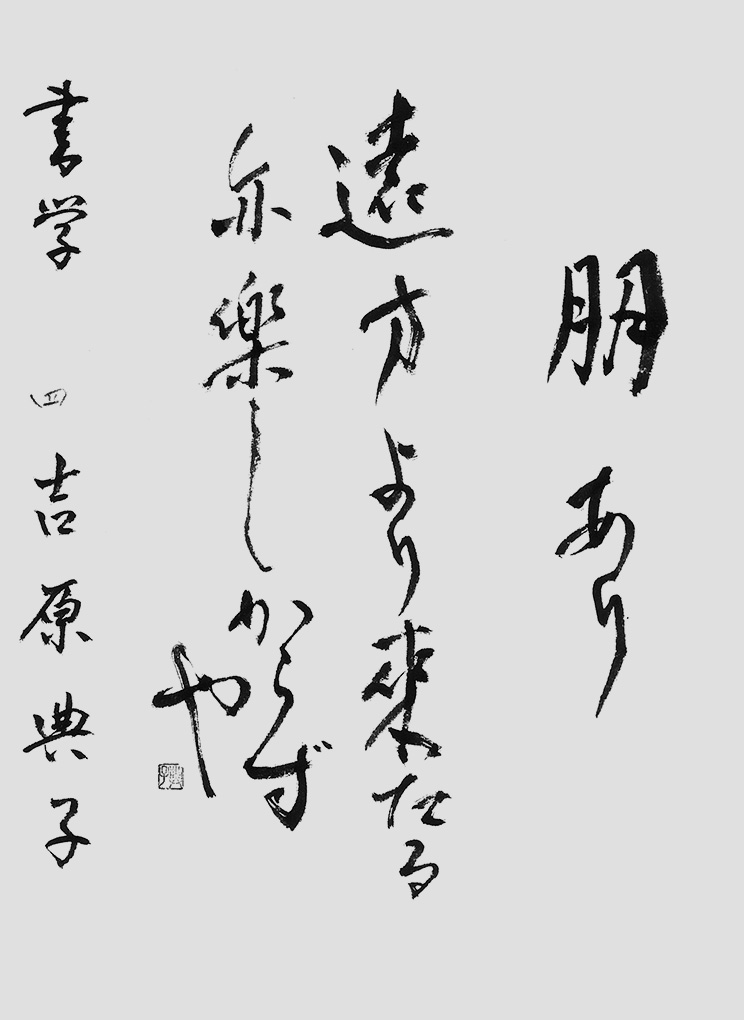 朋あり
遠方より来たる
亦楽しからず
や
書学 四 吉原典子